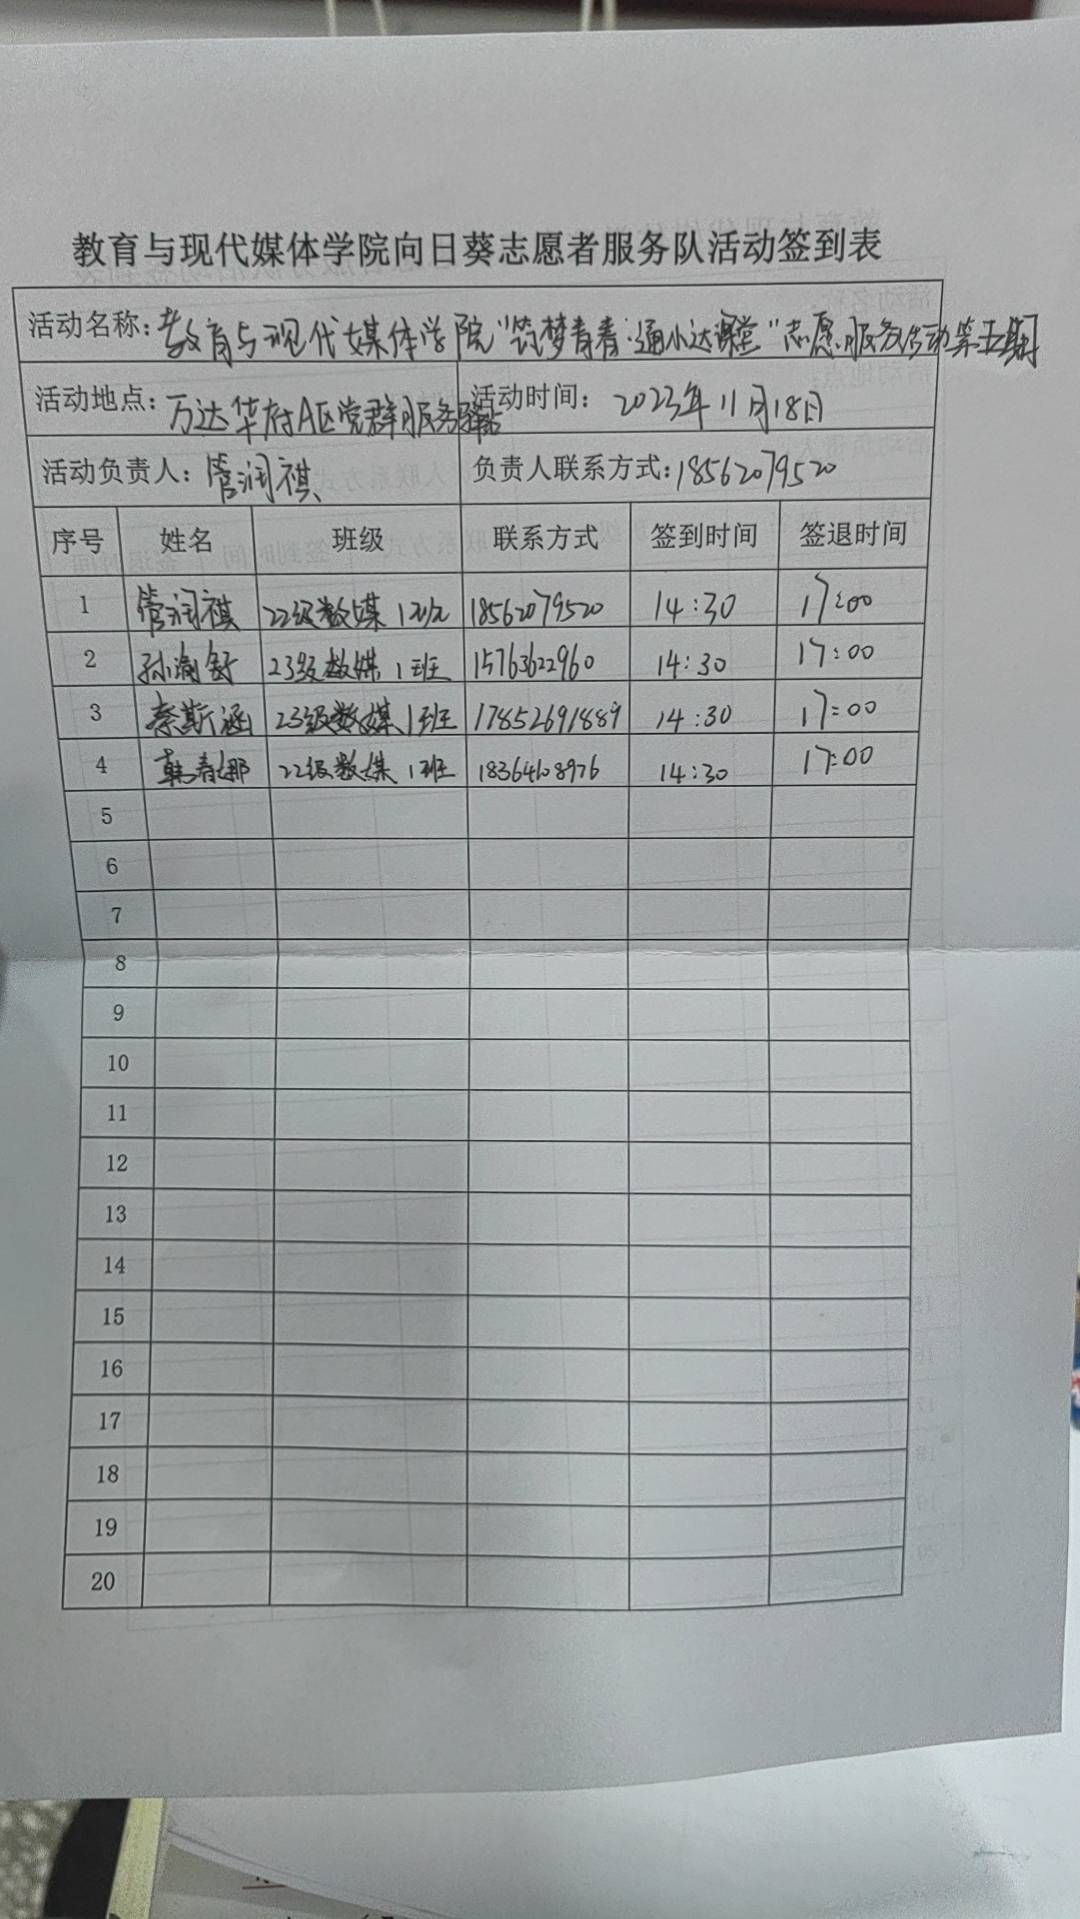 教育与现代媒体学院向日葵志愿者服务队活动签到表
活动名称：教育与现代媒体学院“筑梦青春·通小达课堂”志愿服务活动第五期
活动地点：万达华府A区党群服务驿站 活动时间：2023年11月18日
活动负责人：管润祺 负责人联系方式：18562079520
序号 姓名 班级 联系方式 签到时间 签退时间
1 管润祺 22级数媒1班 18562079520 14:30 17:00
2 孙渝舒 23级数媒1班 15763622960 14:30 17:00
3 秦斯涵 23级数媒1班 17852691889 14:30 17:00
4 韩春娜 22级数媒1班 18364108976 14:30 17:00
5
6
7
8
9
10
11
12
13
14
15
16
17
18
19
20